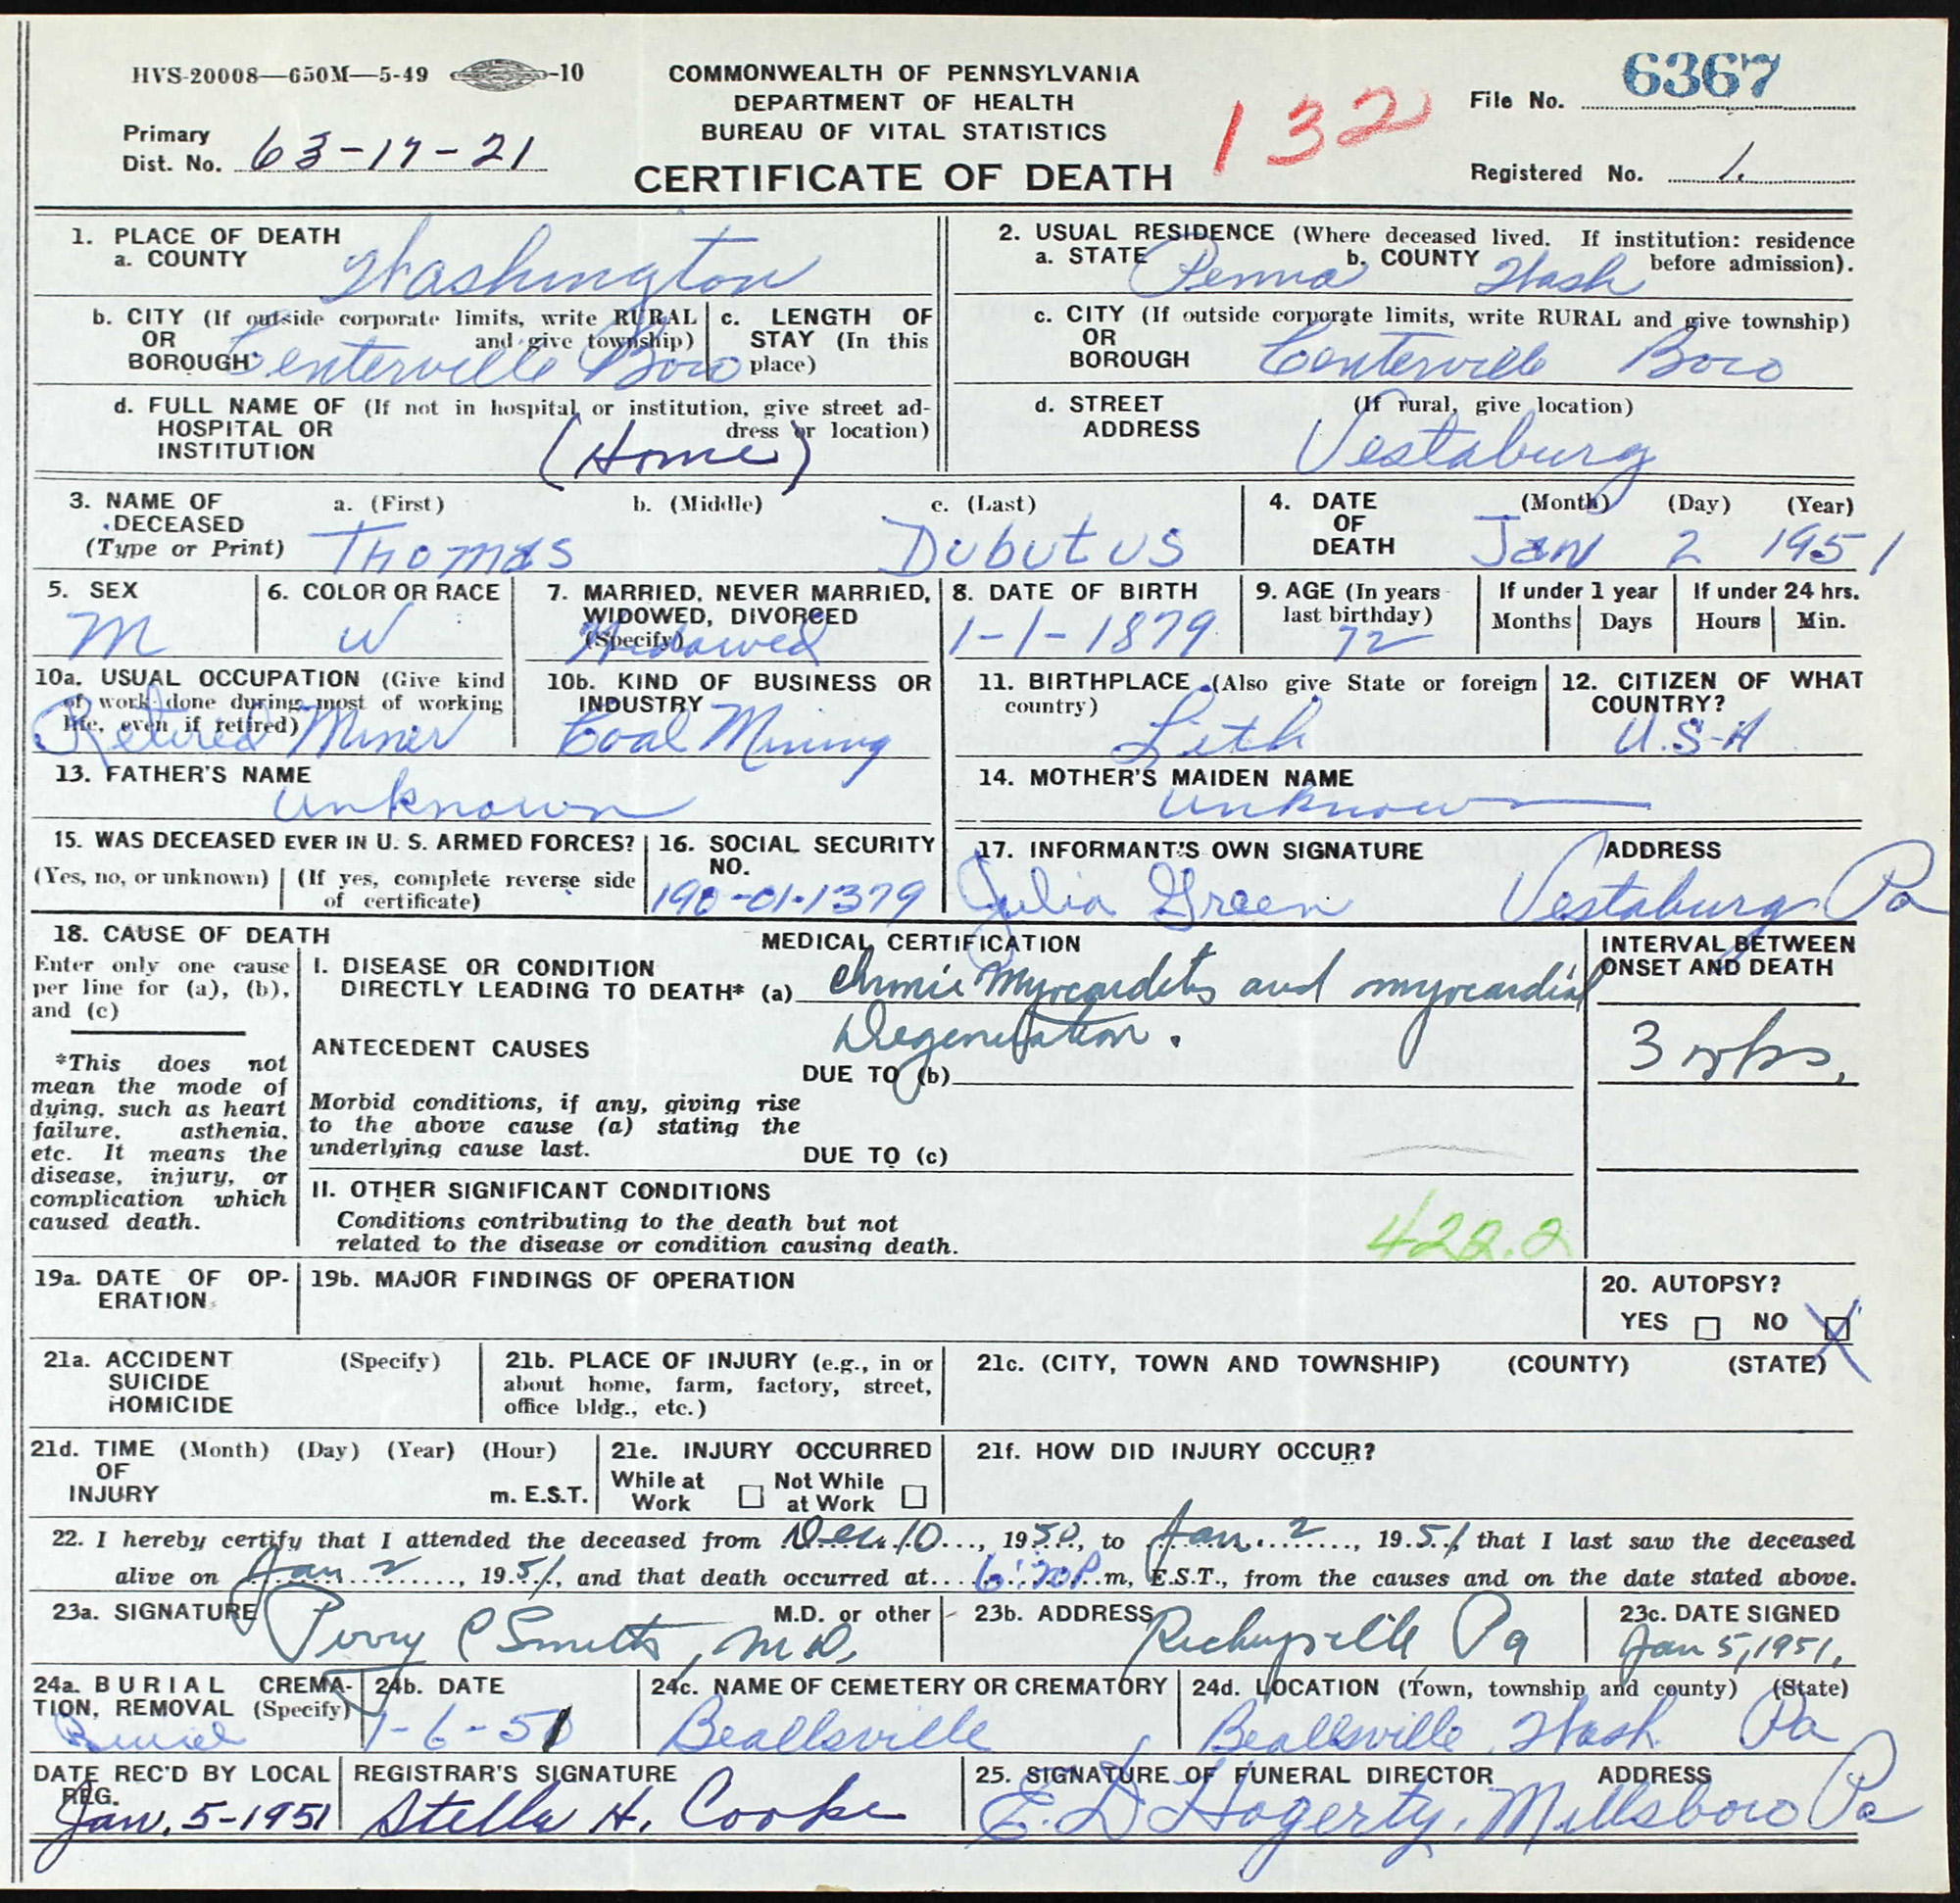 HVS-20008—650M—5-49 -10
COMMONWEALTH OF PENNSYLVANIA
DEPARTMENT OF HEALTH
BUREAU OF VITAL STATISTICS
CERTIFICATE OF DEATH
132
File No. 6367
Primary
Dist. No. 63-17-21
Registered No. 1.
1. PLACE OF DEATH
a. COUNTY Washington
2. USUAL RESIDENCE (Where deceased lived. If institution: residence
before admission).
a. STATE Penna b. COUNTY Wash
b. CITY (If outside corporate limits, write RURAL
OR and give township)
BOROUGH Centerville Boro
c. LENGTH OF
STAY (In this
place)
c. CITY (If outside corporate limits, write RURAL and give township)
OR
BOROUGH Centerville Boro
d. FULL NAME OF (If not in hospital or institution, give street ad-
HOSPITAL OR dress or location)
INSTITUTION (Home)
d. STREET (If rural, give location)
ADDRESS Vestaburg
3. NAME OF
DECEASED
(Type or Print)
a. (First) b. (Middle) c. (Last)
Thomas Dubutus
4. DATE
OF
DEATH
(Month) (Day) (Year)
Jan 2 1951
5. SEX
M
6. COLOR OR RACE
W
7. MARRIED, NEVER MARRIED,
WIDOWED, DIVORCED
(Specify)
Widowed
8. DATE OF BIRTH
1-1-1879
9. AGE (In years
last birthday)
72
If under 1 year
Months Days
If under 24 hrs.
Hours Min.
10a. USUAL OCCUPATION (Give kind
of work done during most of working
life, even if retired)
Retired Miner
10b. KIND OF BUSINESS OR
INDUSTRY
Coal Mining
11. BIRTHPLACE (Also give State or foreign
country)
Lith
12. CITIZEN OF WHAT
COUNTRY?
U.S-A
13. FATHER'S NAME
unknown
14. MOTHER'S MAIDEN NAME
unknown
15. WAS DECEASED EVER IN U. S. ARMED FORCES?
(Yes, no, or unknown) (If yes, complete reverse side
of certificate)
16. SOCIAL SECURITY
NO.
190-01-1379
17. INFORMANT'S OWN SIGNATURE ADDRESS
Julia Green Vestaburg Pa
18. CAUSE OF DEATH
Enter only one cause
per line for (a), (b),
and (c)
*This does not
mean the mode of
dying, such as heart
failure, asthenia,
etc. It means the
disease, injury, or
complication which
caused death.
MEDICAL CERTIFICATION
I. DISEASE OR CONDITION
DIRECTLY LEADING TO DEATH* (a) Chronic Myocarditis and myocardial
Degeneration.
ANTECEDENT CAUSES
DUE TO (b)
Morbid conditions, if any, giving rise
to the above cause (a) stating the
underlying cause last.
DUE TO (c)
INTERVAL BETWEEN
ONSET AND DEATH
3 wks.
II. OTHER SIGNIFICANT CONDITIONS
Conditions contributing to the death but not
related to the disease or condition causing death.
422.2
19a. DATE OF OP-
ERATION
19b. MAJOR FINDINGS OF OPERATION
20. AUTOPSY?
YES NO X
21a. ACCIDENT (Specify)
SUICIDE
HOMICIDE
21b. PLACE OF INJURY (e.g., in or
about home, farm, factory, street,
office bldg., etc.)
21c. (CITY, TOWN AND TOWNSHIP) (COUNTY) (STATE)
21d. TIME (Month) (Day) (Year) (Hour)
OF
INJURY m. E.S.T.
21e. INJURY OCCURRED
While at Not While
Work at Work
21f. HOW DID INJURY OCCUR?
22. I hereby certify that I attended the deceased from Dec. 10, 1950, to Jan. 2, 1951, that I last saw the deceased
alive on Jan 2, 1951, and that death occurred at P.m, E.S.T., from the causes and on the date stated above.
23a. SIGNATURE M.D. or other
Perry C Smith, M.D.
23b. ADDRESS
Richeyville Pa
23c. DATE SIGNED
Jan 5, 1951.
24a. BURIAL CREMA-
TION, REMOVAL (Specify)
Burial
24b. DATE
1-6-51
24c. NAME OF CEMETERY OR CREMATORY
Beallsville
24d. LOCATION (Town, township and county) (State)
Beallsville, Wash. Pa
DATE REC'D BY LOCAL
REG.
Jan. 5-1951
REGISTRAR'S SIGNATURE
Stella H. Cooke
25. SIGNATURE OF FUNERAL DIRECTOR ADDRESS
E. D Hagerty, Millsboro Pa